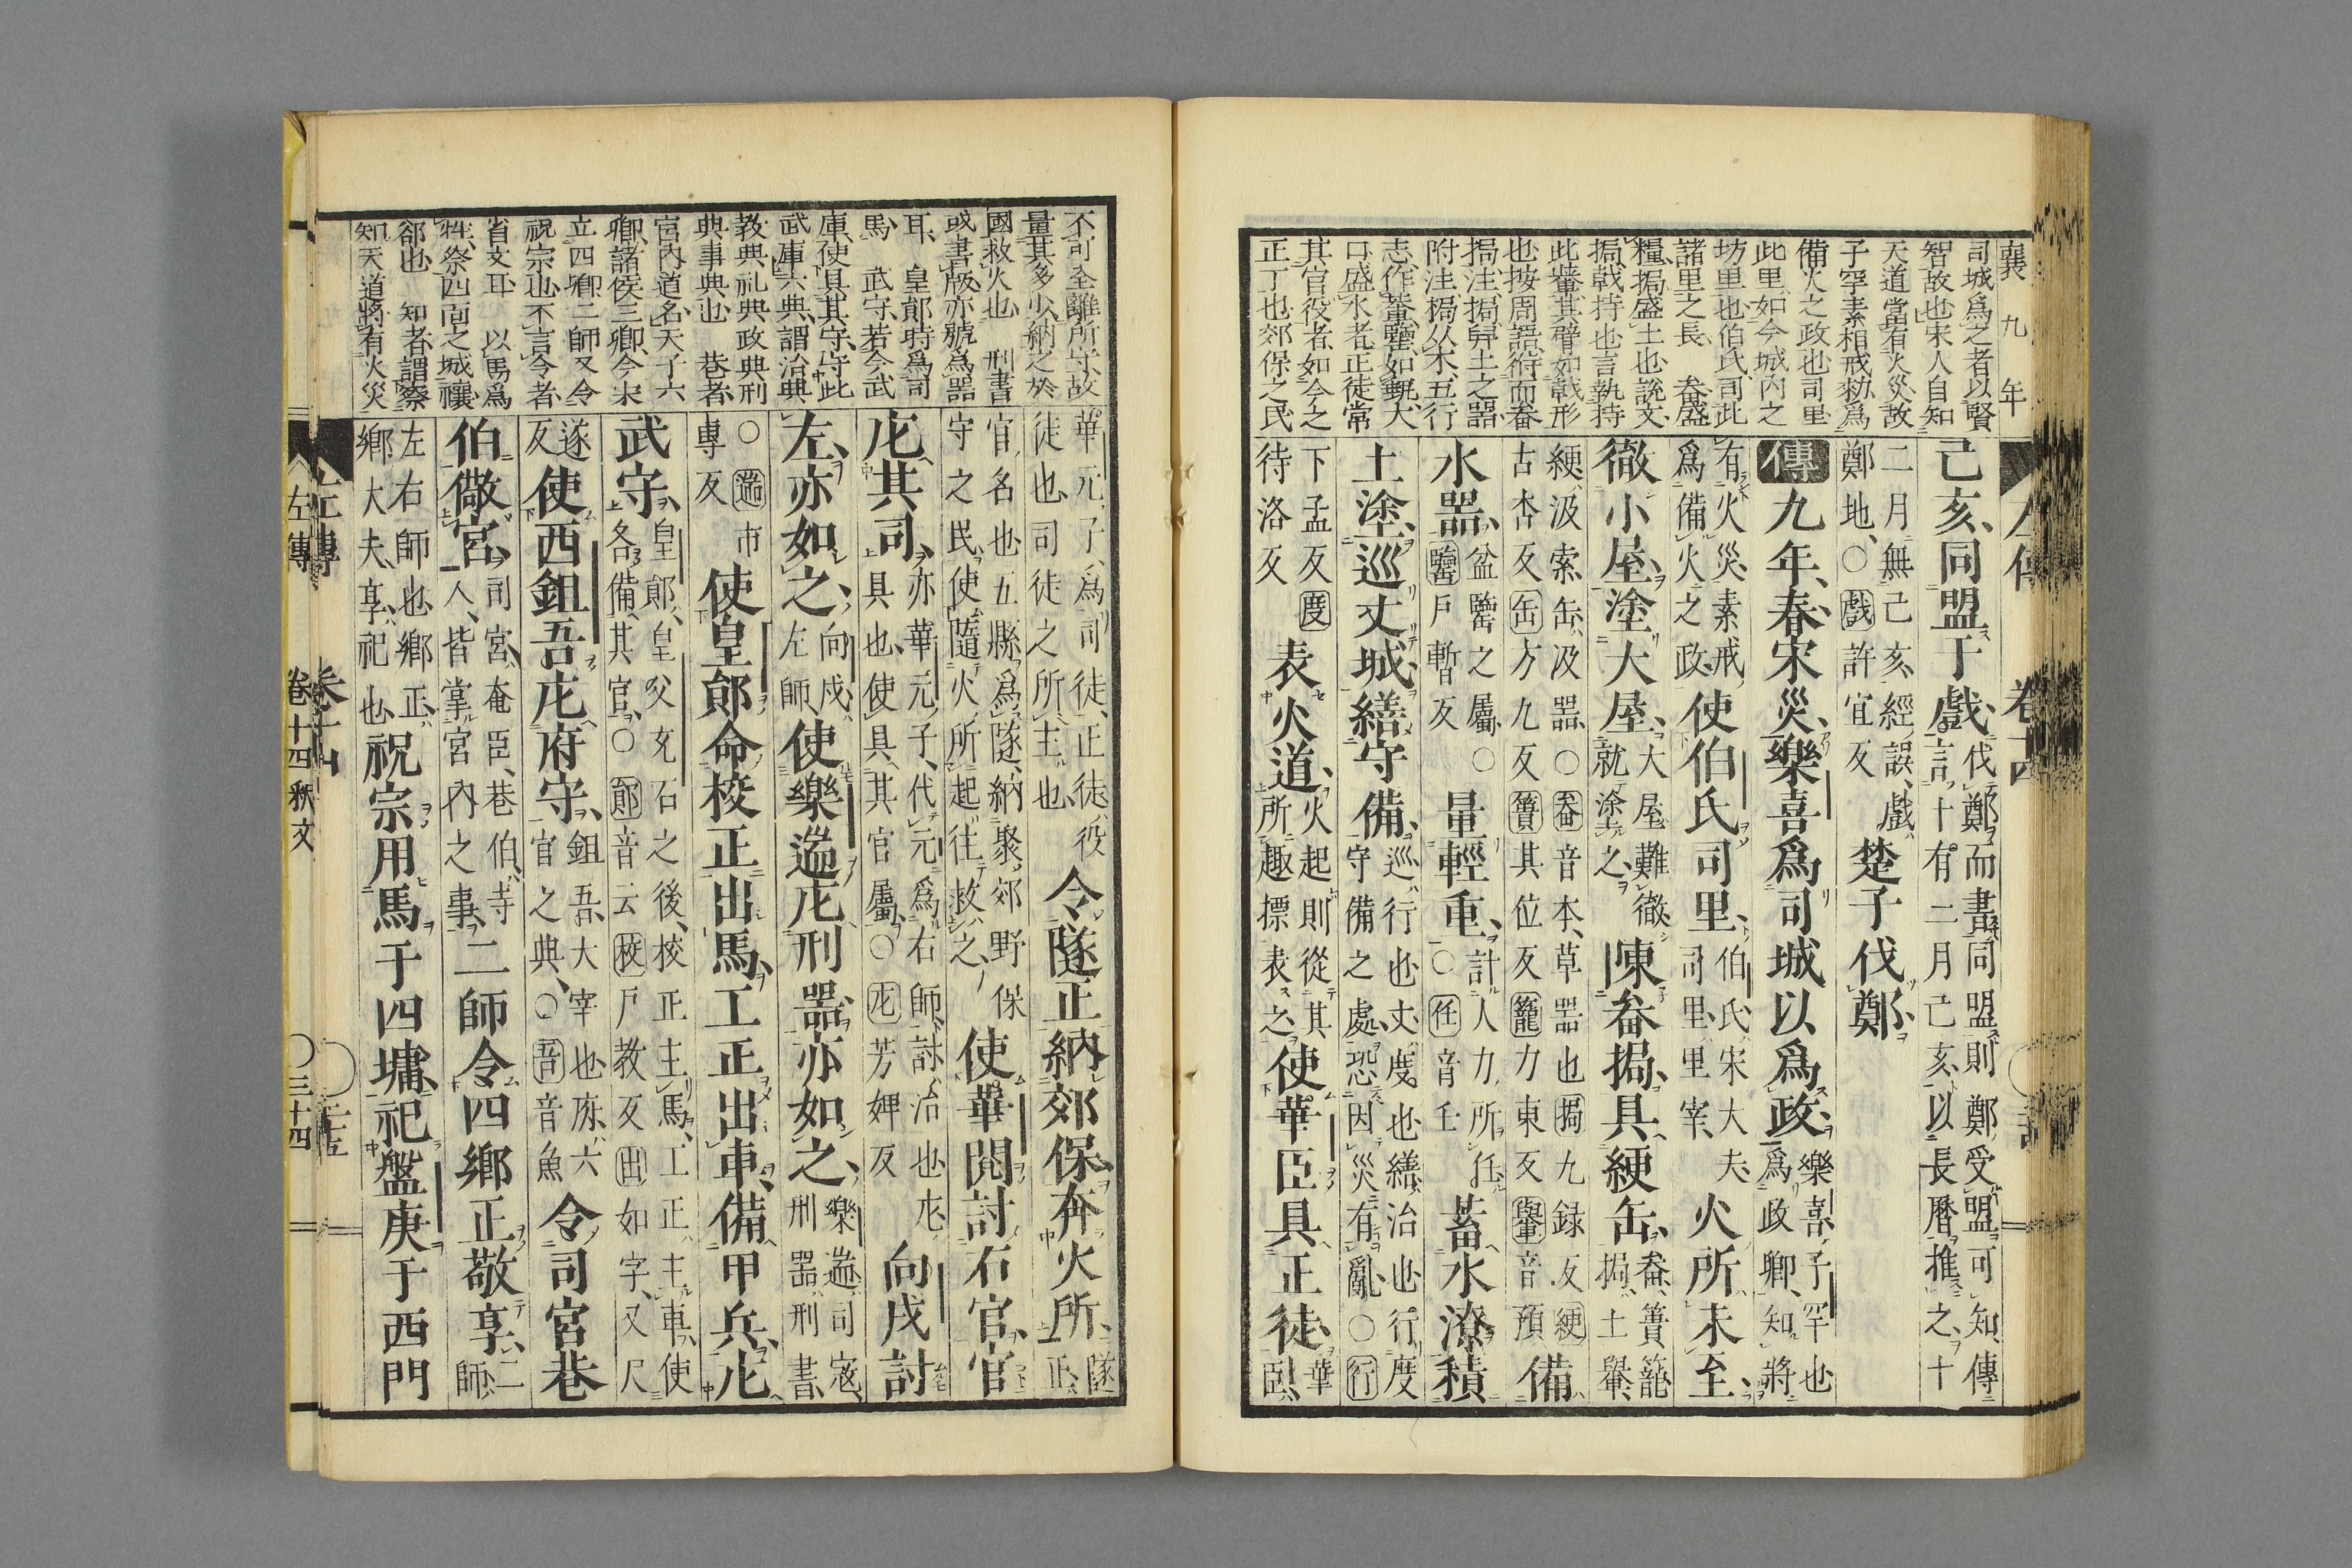 襄九年
司城爲之者以賢
智故也宋人自知
天道當有火災故
子罕素相戒勑爲
備火之政也司里
此里如今城內之
坊里也伯氏司此
諸里之長 畚盛
糧挶盛土也說文
挶戟持也言執持
此轝其臂如戟形
也按周語偫而畚
挶注挶舁土之器
附注挶从木五行
志作輂罌如甒大
口盛水者正徒常
其官役者如今之
正丁也郊保之民
己亥同盟于戲伐鄭而書同盟則鄭受盟可知傳言十有二月己亥以長曆推之十
二月無己亥經誤戲鄭地○戲許宜反楚子伐鄭
傳九年春宋災樂喜爲司城以爲政樂喜子罕也爲政卿知將
有火災素戒爲備火之政使伯氏司里伯氏宋大夫司里里宰火所未至
徹小屋塗大屋大屋難徹就塗之陳畚挶具綆缶畚簣籠挶土轝
綆汲索缶汲器○畚音本草器也挶九録反綆古杏反缶方九反簣其位反籠力東反轝音預備
水器盆罌之屬○罌戶暫反量輕重計人力所任○任音壬蓄水潦積
土塗巡丈城繕守備巡行也丈度也繕治也行度守備之處恐因災有亂○行
下孟反度待洛反表火道火起則從其所趣摽表之使華臣具正徒華臣
華元子爲司徒正徒役徒也司徒之所主也令隧正納郊保奔火所隧正
官名也五縣爲隧納聚郊野保守之民使隨火所起往救之使華閱討右官官
庀其司亦華元子代元爲右師討治也庀具也使具其官屬○庀芳婢反向戌討
左亦如之向戌左師使樂遄庀刑器亦如之樂遄司寇刑器刑書
○遄市專反使皇鄖命校正出馬工正出車備甲兵庀
武守皇鄖皇父充石之後校正主馬工正主車使各備其官○鄖音云校戶教反出如字又尺
遂反使西鉏吾庀府守鉏吾大宰也府六官之典○吾音魚令司宮巷
伯儆宮司宮奄臣巷伯寺人皆掌宮內之事二師令四鄉正敬享二師
左右師也鄉正鄉大夫享祀也祝宗用馬于四墉祀盤庚于西門
不可全離所守故
量其多少納之於
國救火也 刑書
或書版亦號爲器
耳 皇鄖時爲司
馬 武守若今武
庫使具其守守此
武庫六典謂治典
教典礼典政典刑
典事典也 巷者
宮內道名天子六
卿諸侯三卿今宋
立四卿二師又令
祝宗也不言令者
省文耳 以馬爲
牲祭四面之城禳
郤也 知者謂察
知天道將有火災
左傳 卷十四
左傳 卷十四 秋文 ○三十四